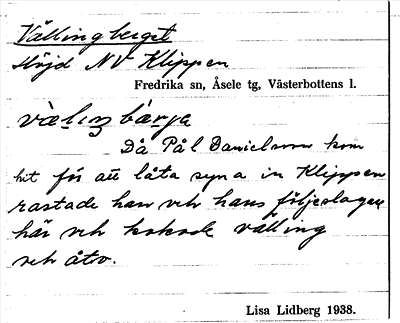 Vällingberget
Höjd NV Klippen
Fredrika sn, Åsele tg, Västerbottens l.
Då Pål Danielsson kom
hit för att låta syna in Klippen
rastade han och hans följeslagare
här och kokade välling
och åto.
Lisa Lidberg 1938.